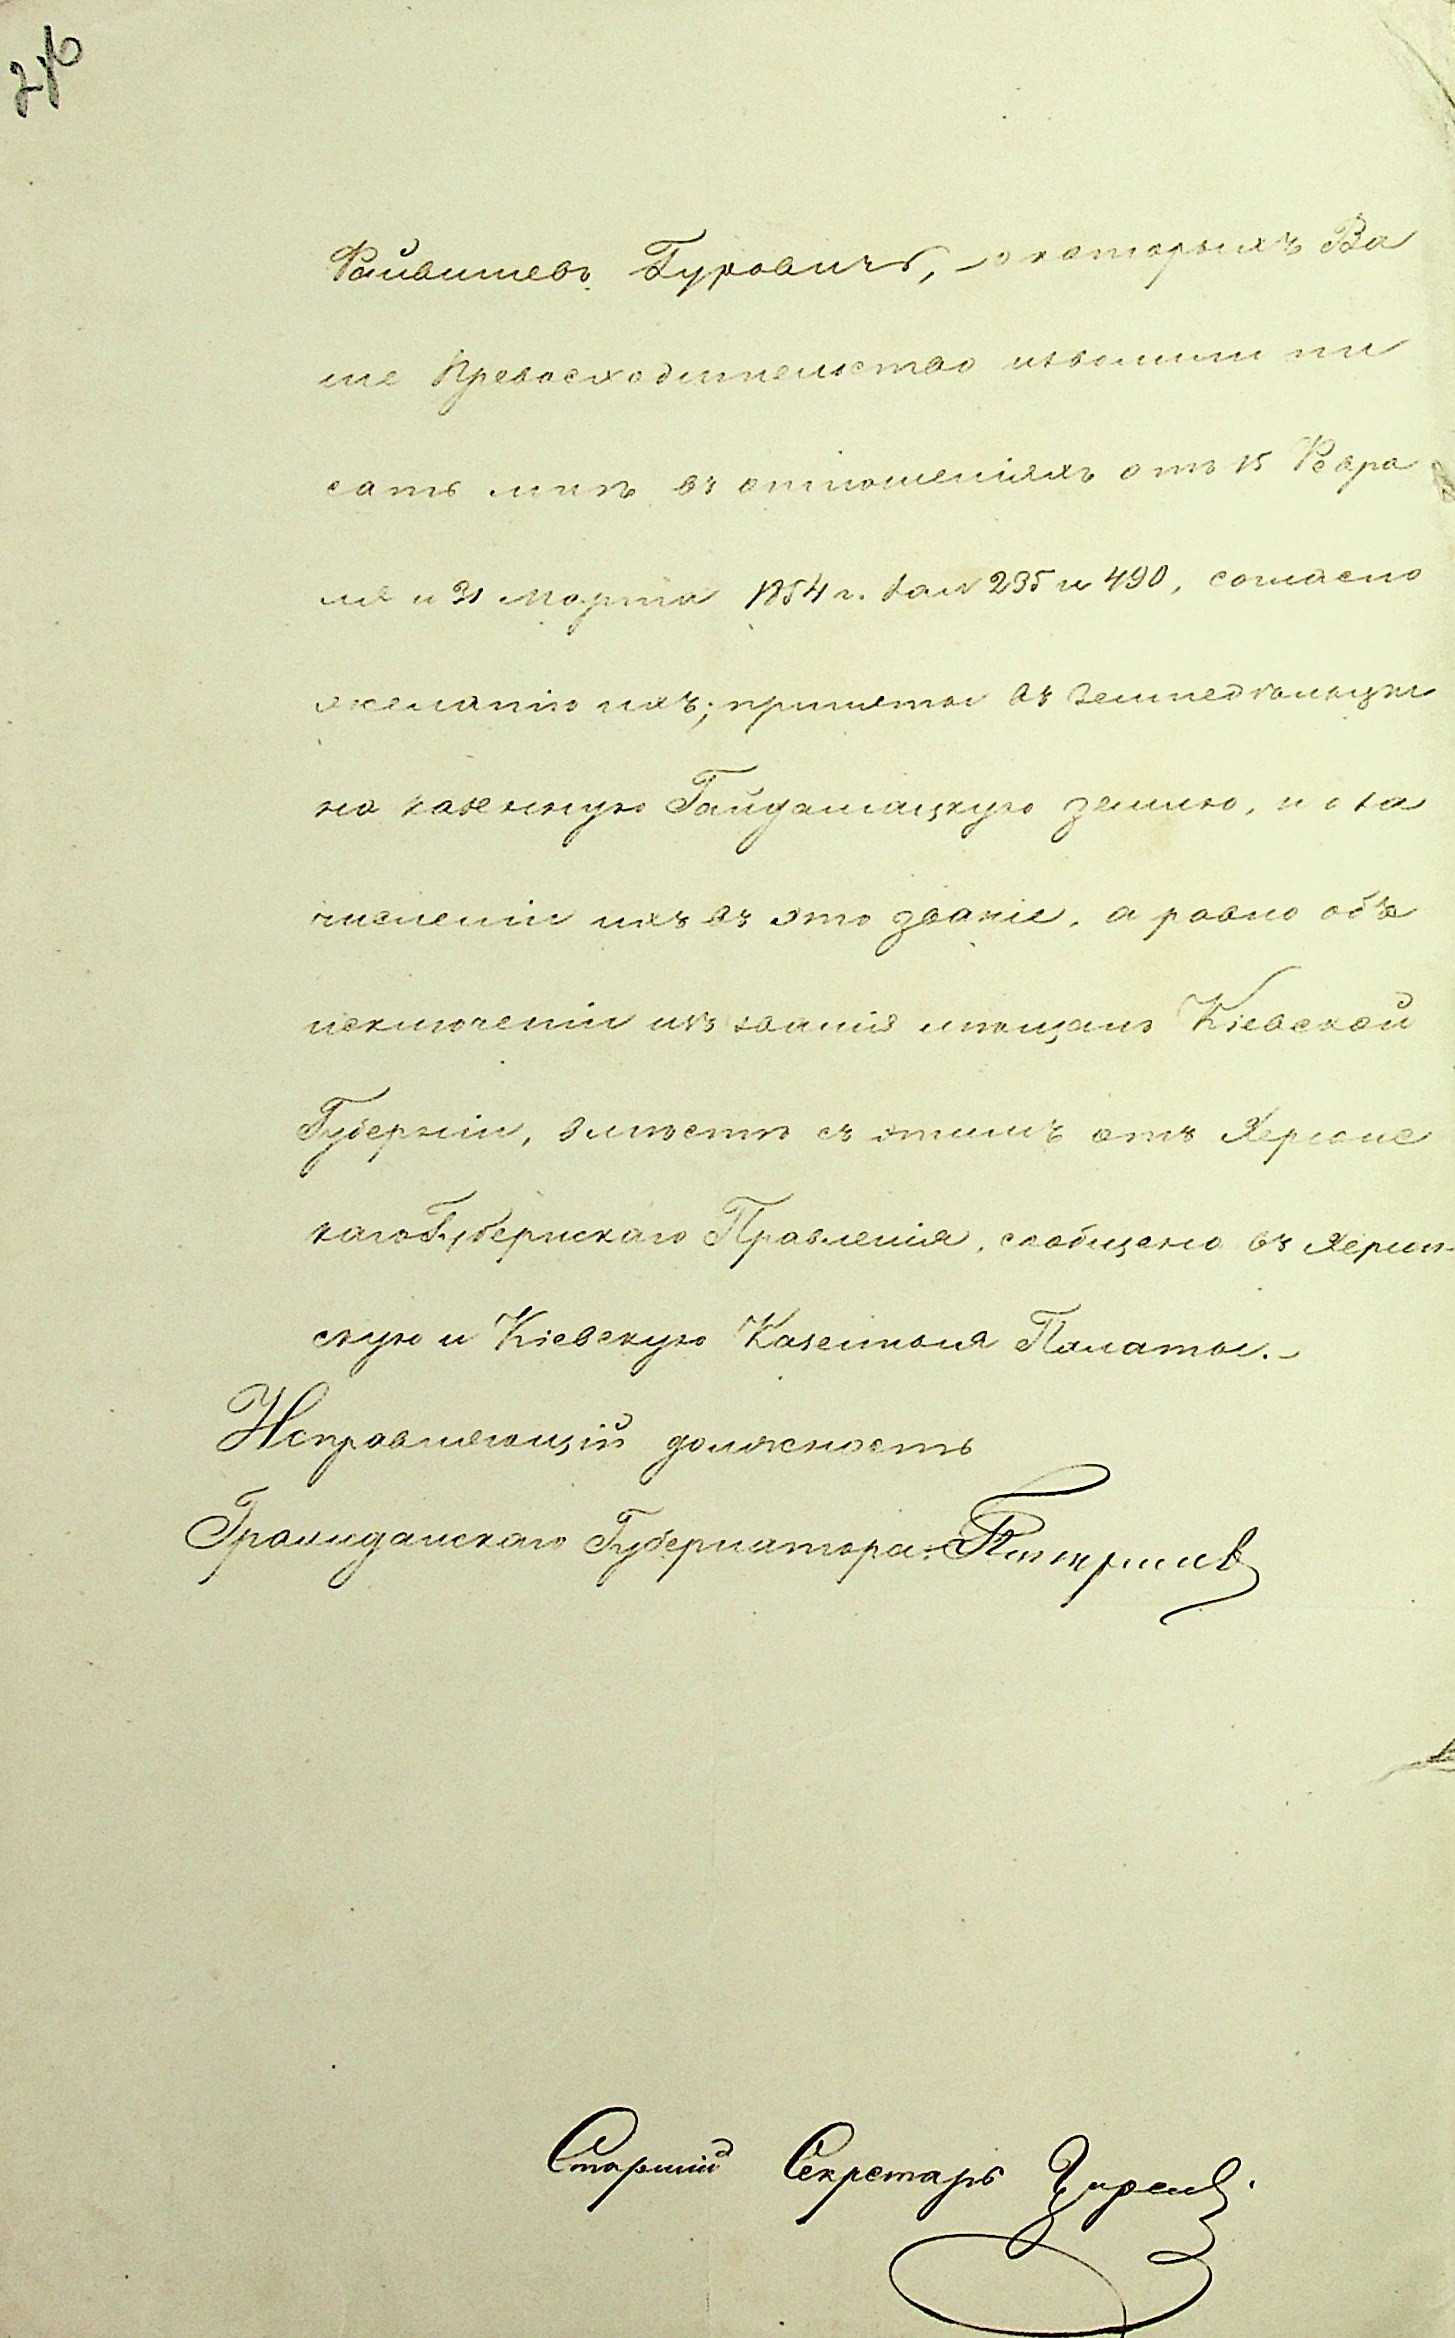 Файвишевъ Гуровичъ, о которыхъ Ва
ше Превосходительство изволили пи
сать мнѣ въ отношеніяхъ отъ 15 Февра
ля и 31 Марта 1854 г. за № 235 и 490, согласно
желанію ихъ, приняты въ земледѣльцы
на казенную Гайдамацкую землю, и о за
численіи ихъ въ это званіе, а равно объ
исключеніи изъ званія мѣщанъ Кіевской
Губерніи, вмѣстѣ съ этимъ отъ Херсонс
каго Губернскаго Правленія, сообщено въ Херсон-
скую и Кіевскую Казенныя Палаты.
Исправляющій должность
Гражданскаго Губернатора
Старшій Секретарь